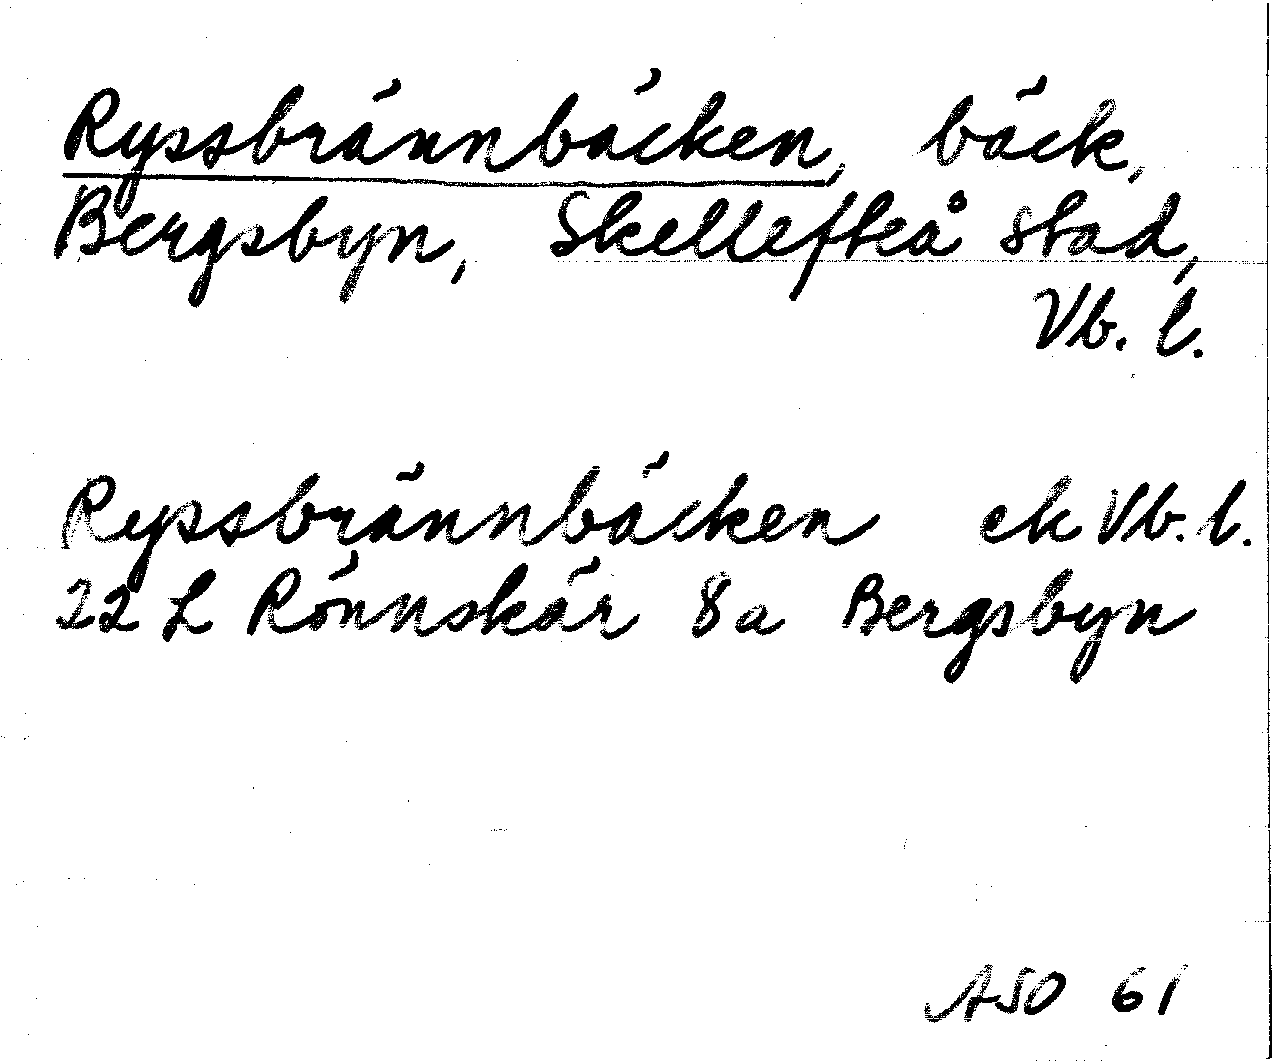 Ryssbrännbäcken, bäck,
Bergsbyn, Skellefteå stad,
Vb. l.
Ryssbrännbäcken ek Vb. l.
22 L Rönnskär 8a Bergsbyn
ASO 61